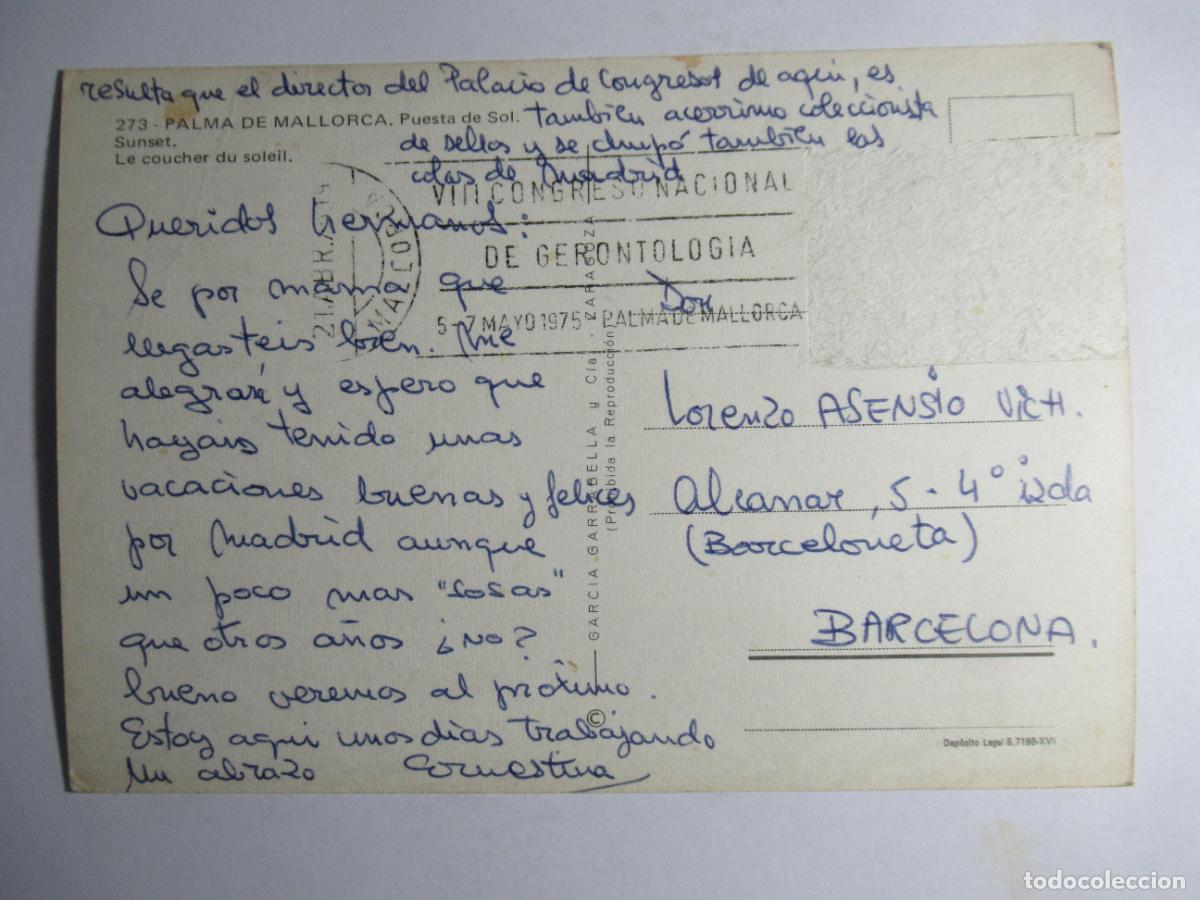 resulta que el director del Palacio de Congresos de aquí, es
también acerrimo coleccionista
de sellos y se chupó también las
colas de Madrid
273 - PALMA DE MALLORCA. Puesta de Sol.
Sunset.
Le coucher du soleil.
Queridos hermanos:
Se por mamá que
llegasteis bien. Me
alegraré y espero que
hayais tenido unas
vacaciones buenas y felices
por Madrid aunque
un poco mas "sosas"
que otros años ¿no?
bueno veremos al próximo.
Estoy aqui unos dias trabajando
Un abrazo Ernestina
VIII CONGRESO NACIONAL
DE GERONTOLOGIA
5-7 MAYO 1975 - PALMA DE MALLORCA
21 ABR
MALLORCA
GARCIA GARRABELLA y Cía. - ZARAGOZA
(Prohibida la Reproducción)
©
Don
Lorenzo ASENSIO VICH.
Alcanar, 5 - 4º izda
(Barceloneta)
BARCELONA.
Depósito Legal B.7190-XVI
todocoleccion